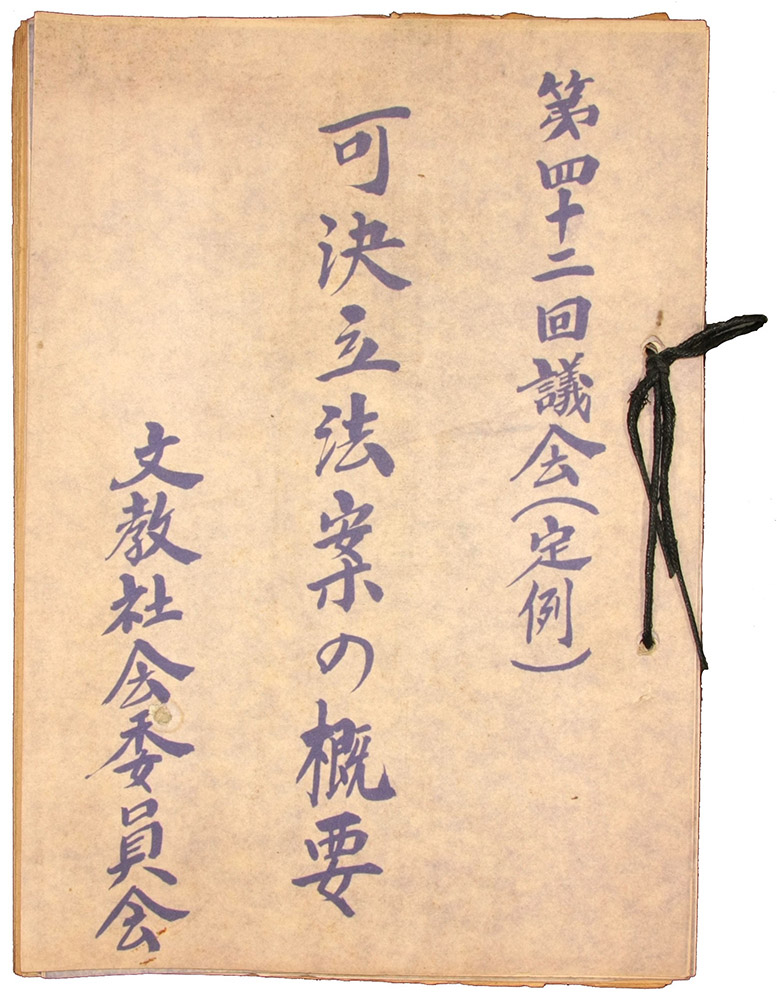 第四十二回議会(定例)
可決立法案の概要
文教社会委員会